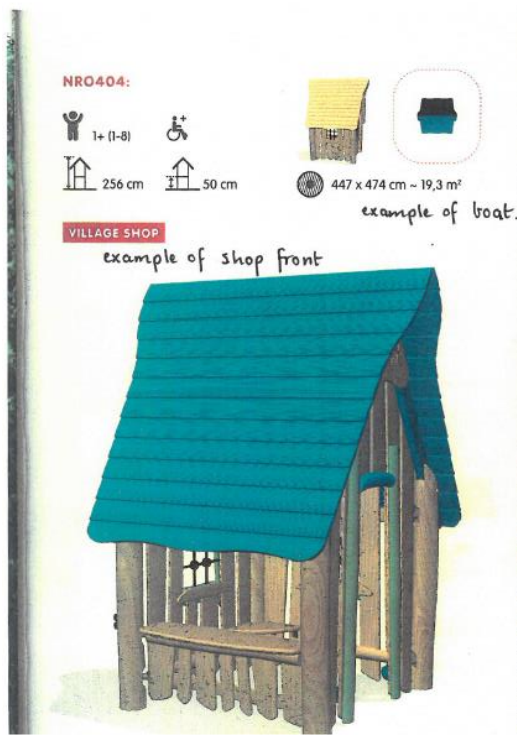 NRO404:
1+ (1-8)
256 cm
50 cm
447 x 474 cm ~ 19,3 m²
example of boat.
VILLAGE SHOP
example of shop front